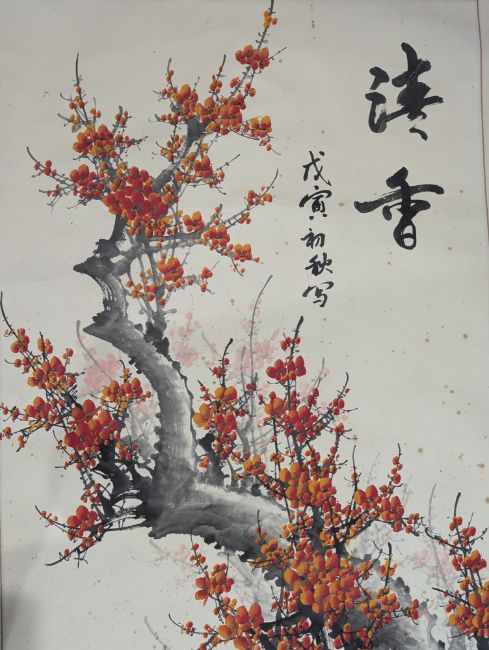 清香
戊寅初秋写